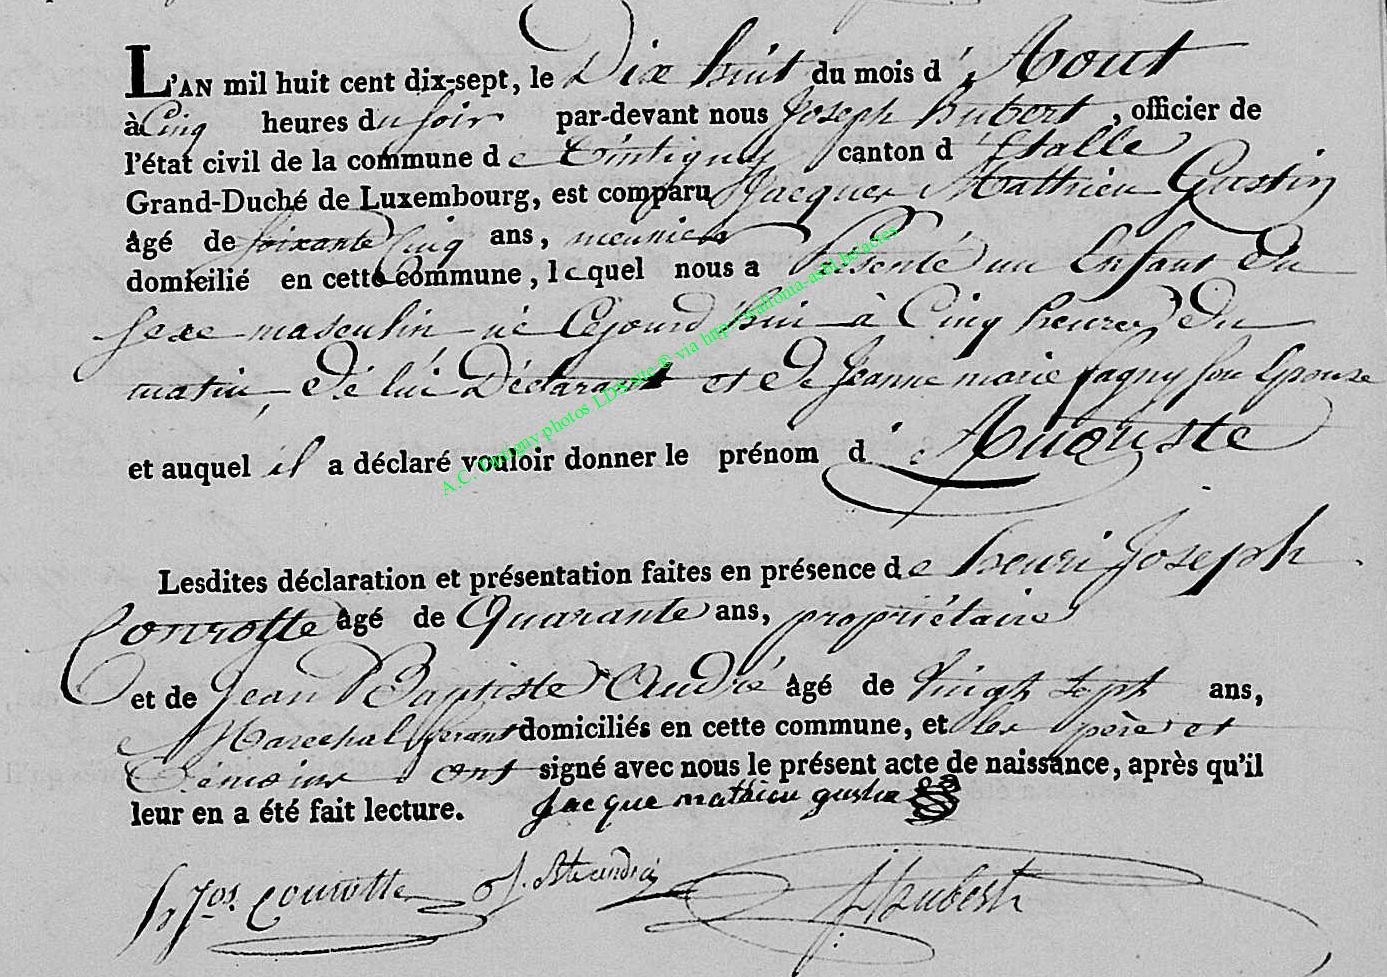 L'AN mil huit cent dix-sept, le Dix huit du mois d' Aout
à Cinq heures du soir par-devant nous Joseph hubert, officier de
l'état civil de la commune de tintigny canton d' Etalle
Grand-Duché de Luxembourg, est comparu Jacques Mathieu Gustin
âgé de soixante Cinq ans, meunier
domicilié en cette commune, lequel nous a présenté un Enfant Du
sexe masculin né Cejourd'hui à Cinq heures Du
matin, De lui Déclarant et De Jeanne marie fagny son Epouse
et auquel il a déclaré vouloir donner le prénom d' Auguste
Lesdites déclaration et présentation faites en présence de henri Joseph
Conrotte âgé de Quarante ans, propriétaire
et de Jean Baptiste André âgé de vingt sept ans,
Marechal ferant domiciliés en cette commune, et les père et
témoins ont signé avec nous le présent acte de naissance, après qu'il
leur en a été fait lecture. Jacque mathieu gustin
h Jos. conrotte J. Bte andré Hubert
A.C. Tintigny photos LDS site ® via http://wallonia-asbl.be/actes